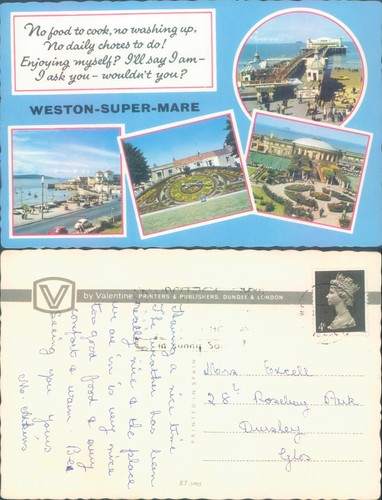 No food to cook, no washing up,
No daily chores to do!
Enjoying myself? I'll say I am-
I ask you - wouldn't you?
WESTON-SUPER-MARE
V
by Valentine PRINTERS & PUBLISHERS, DUNDEE & LONDON
Having a nice time
The weather has been
really nice & the place
we are in is very nice
too good food & very
comfort & warm.
seeing you yours
Mrs Excell
28 Rosebery Park
Dursley
Glos